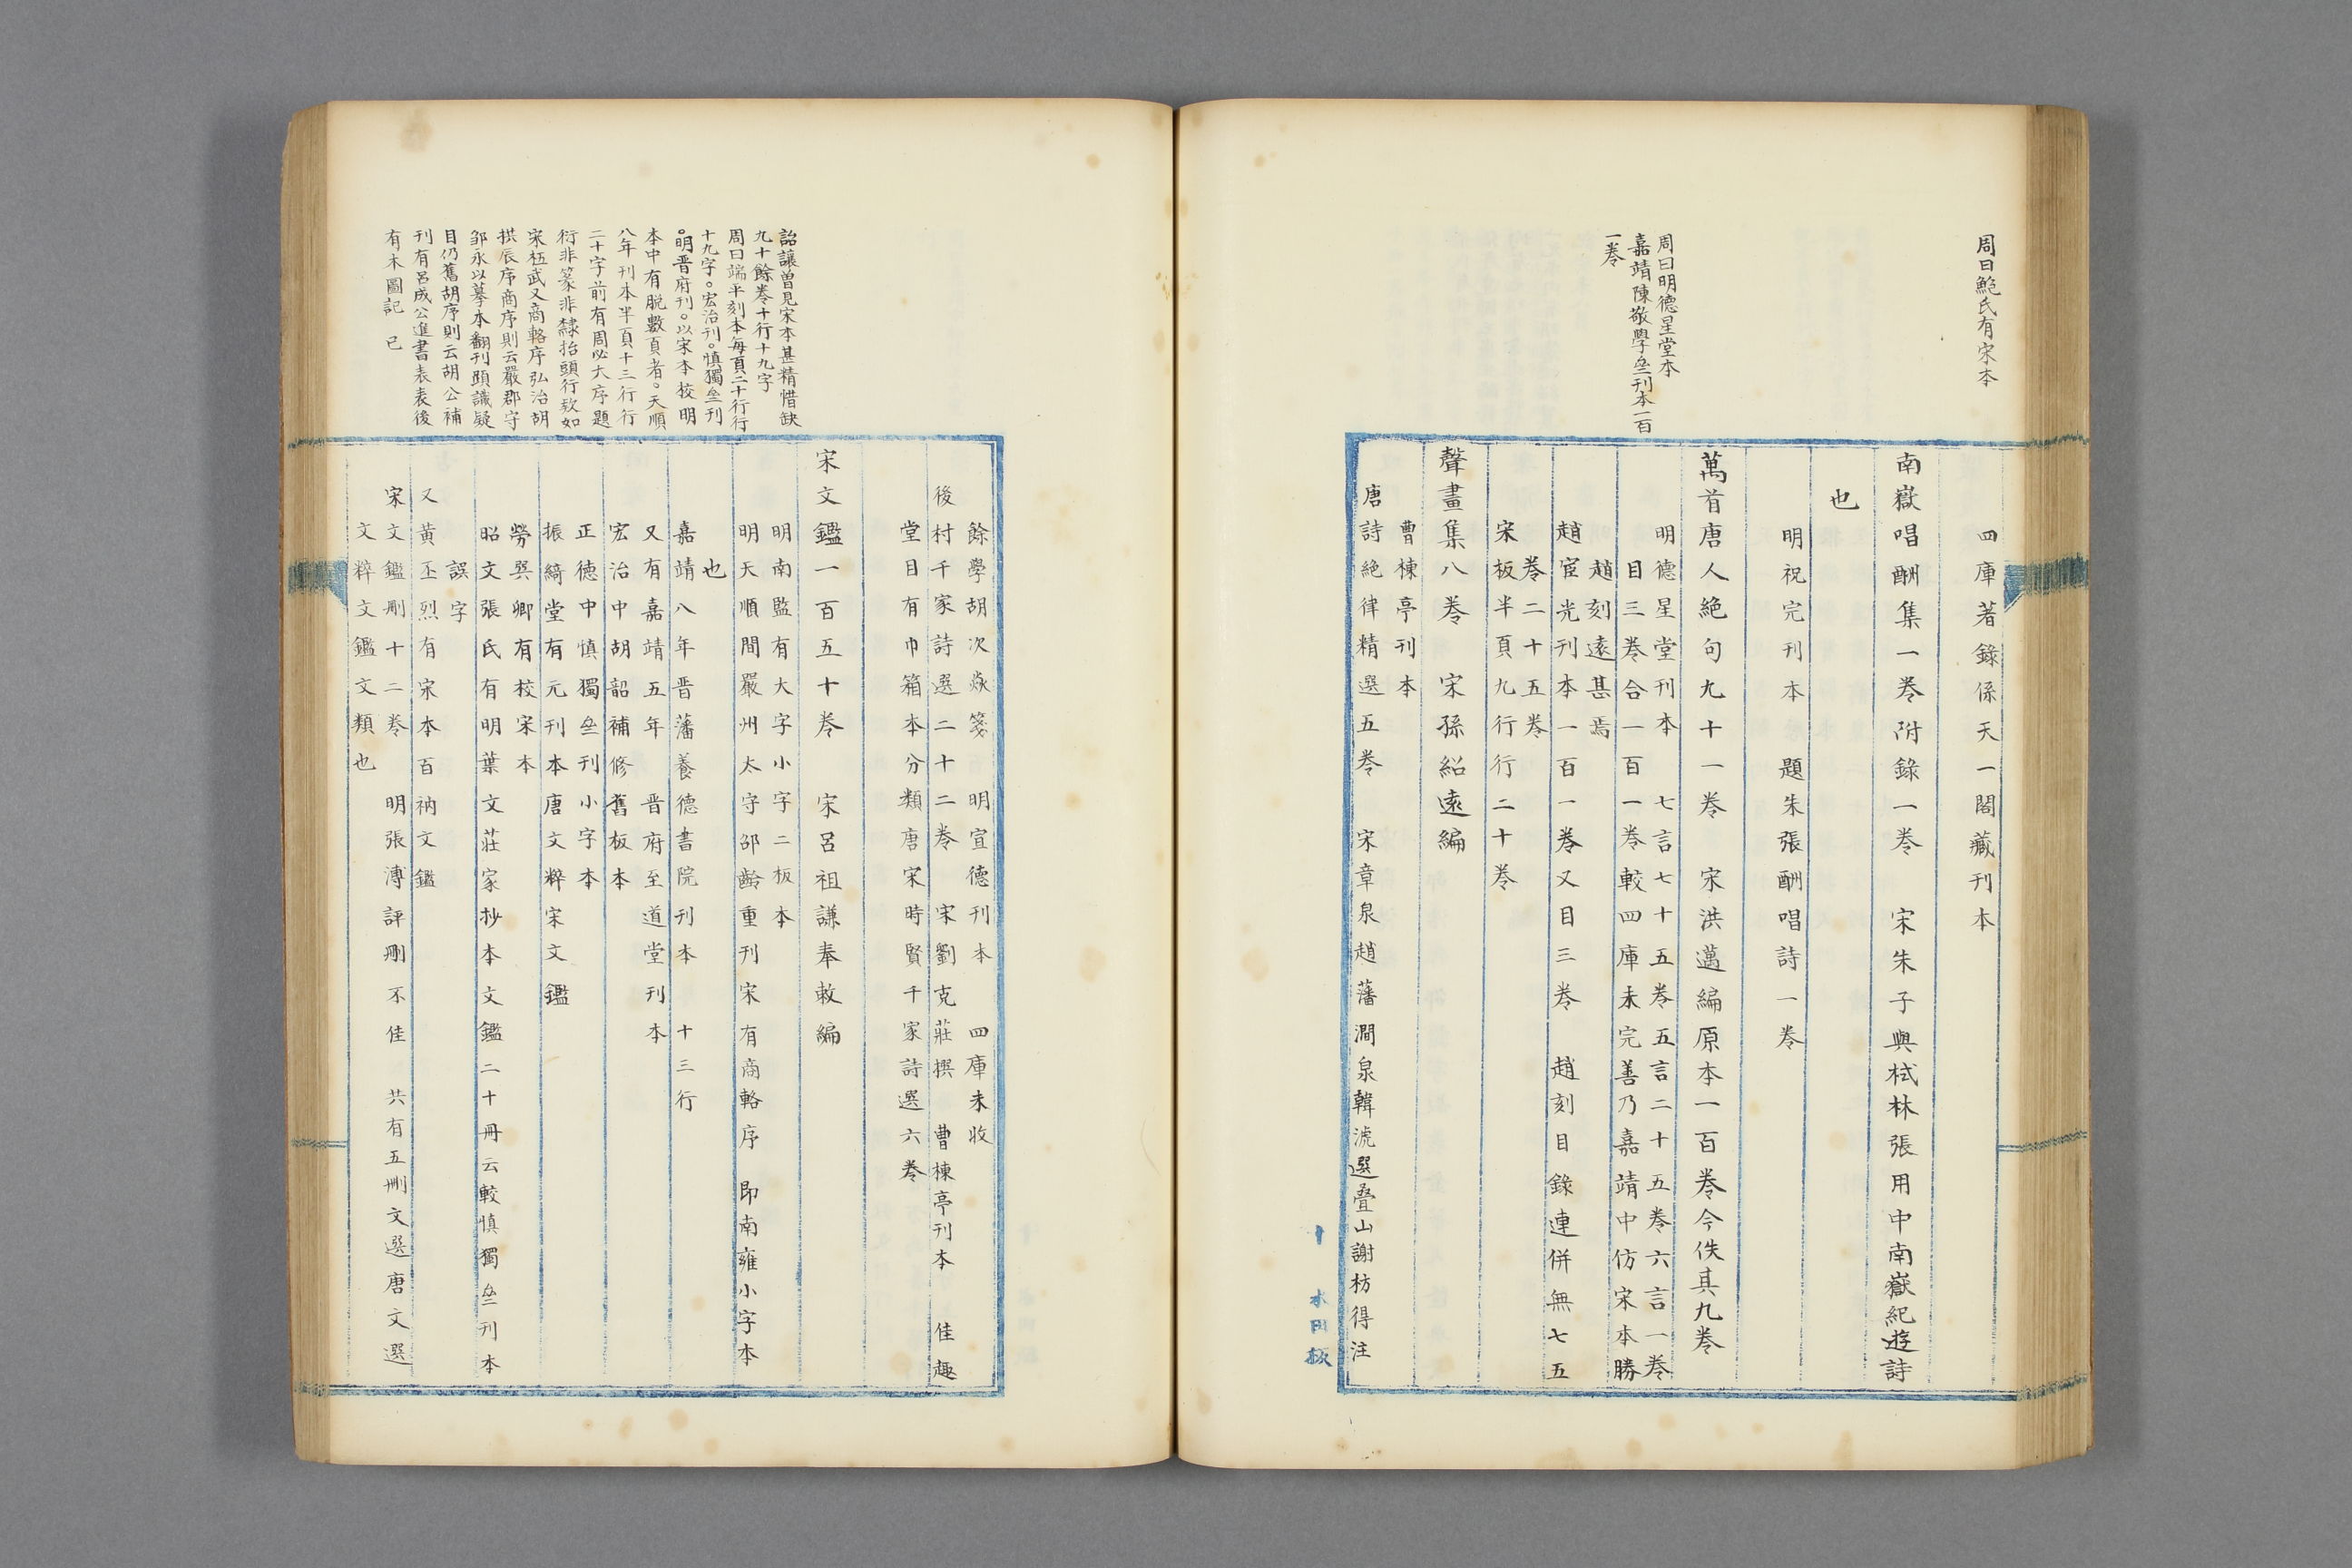 周曰鮑氏有宋本
周曰明德星堂本
嘉靖陳敬學仝刊本一百
一卷
四庫著錄係天一閣藏刊本
南嶽唱酬集一卷附錄一卷　宋朱子與栻林張用中南嶽紀遊詩
也
明祝完刊本　題朱張酬唱詩一卷
萬首唐人絕句九十一卷　宋洪邁編原本一百卷今佚其九卷
明德星堂刊本　七言七十五卷五言二十五卷六言一卷
目三卷合一百一卷較四庫未完善乃嘉靖中仿宋本勝
趙刻遠甚焉
趙宦光刊本一百一卷又目三卷　趙刻目錄連併無七五
卷二十五卷
宋板半頁九行行二十卷
聲畫集八卷　宋孫紹遠編
曹棟亭刊本
唐詩絕律精選五卷　宋章泉趙藩澗泉韓淲選疊山謝枋得注
十
木田板
詒讓曾見宋本甚精惜缺
九十餘卷十行十九字
周曰端平刻本每頁二十行行
十九字。宏治刊。慎獨仝刊
。明晋府刊。以宋本校明
本中有脫數頁者。天順
八年刊本半頁十三行行
二十字前有周必大序題
衍非篆非隸抬頭行款如
宋板武又商輅序弘治胡
拱辰序商序則云嚴郡守
邹永以摹本翻刊題識疑
目仍舊胡序則云胡公補
刊有呂成公進書表表後
有木圖記　已
餘學胡次焱箋　明宣德刊本　四庫未收
後村千家詩選二十二卷　宋劉克莊撰　曹棟亭刊本　佳趣
堂目有巾箱本分類唐宋時賢千家詩選六卷
宋文鑑一百五十卷　宋呂祖謙奉敕編
明南監有大字小字二板本
明天順間嚴州太守邵齡重刊宋有商輅序　即南雍小字本
也
嘉靖八年晋藩養德書院刊本　十三行
又有嘉靖五年　晋府至道堂刊本
宏治中胡韶補修舊板本
正德中慎獨仝刊小字本
振綺堂有元刊本唐文粹宋文鑑
勞巽卿有校宋本
昭文張氏有明葉文莊家抄本文鑑二十冊云較慎獨仝刊本
誤字
又黃丕烈有宋本百衲文鑑
宋文鑑刪十二卷　明張溥評刪不佳　共有五刪文選唐文選
文粹文鑑文類也